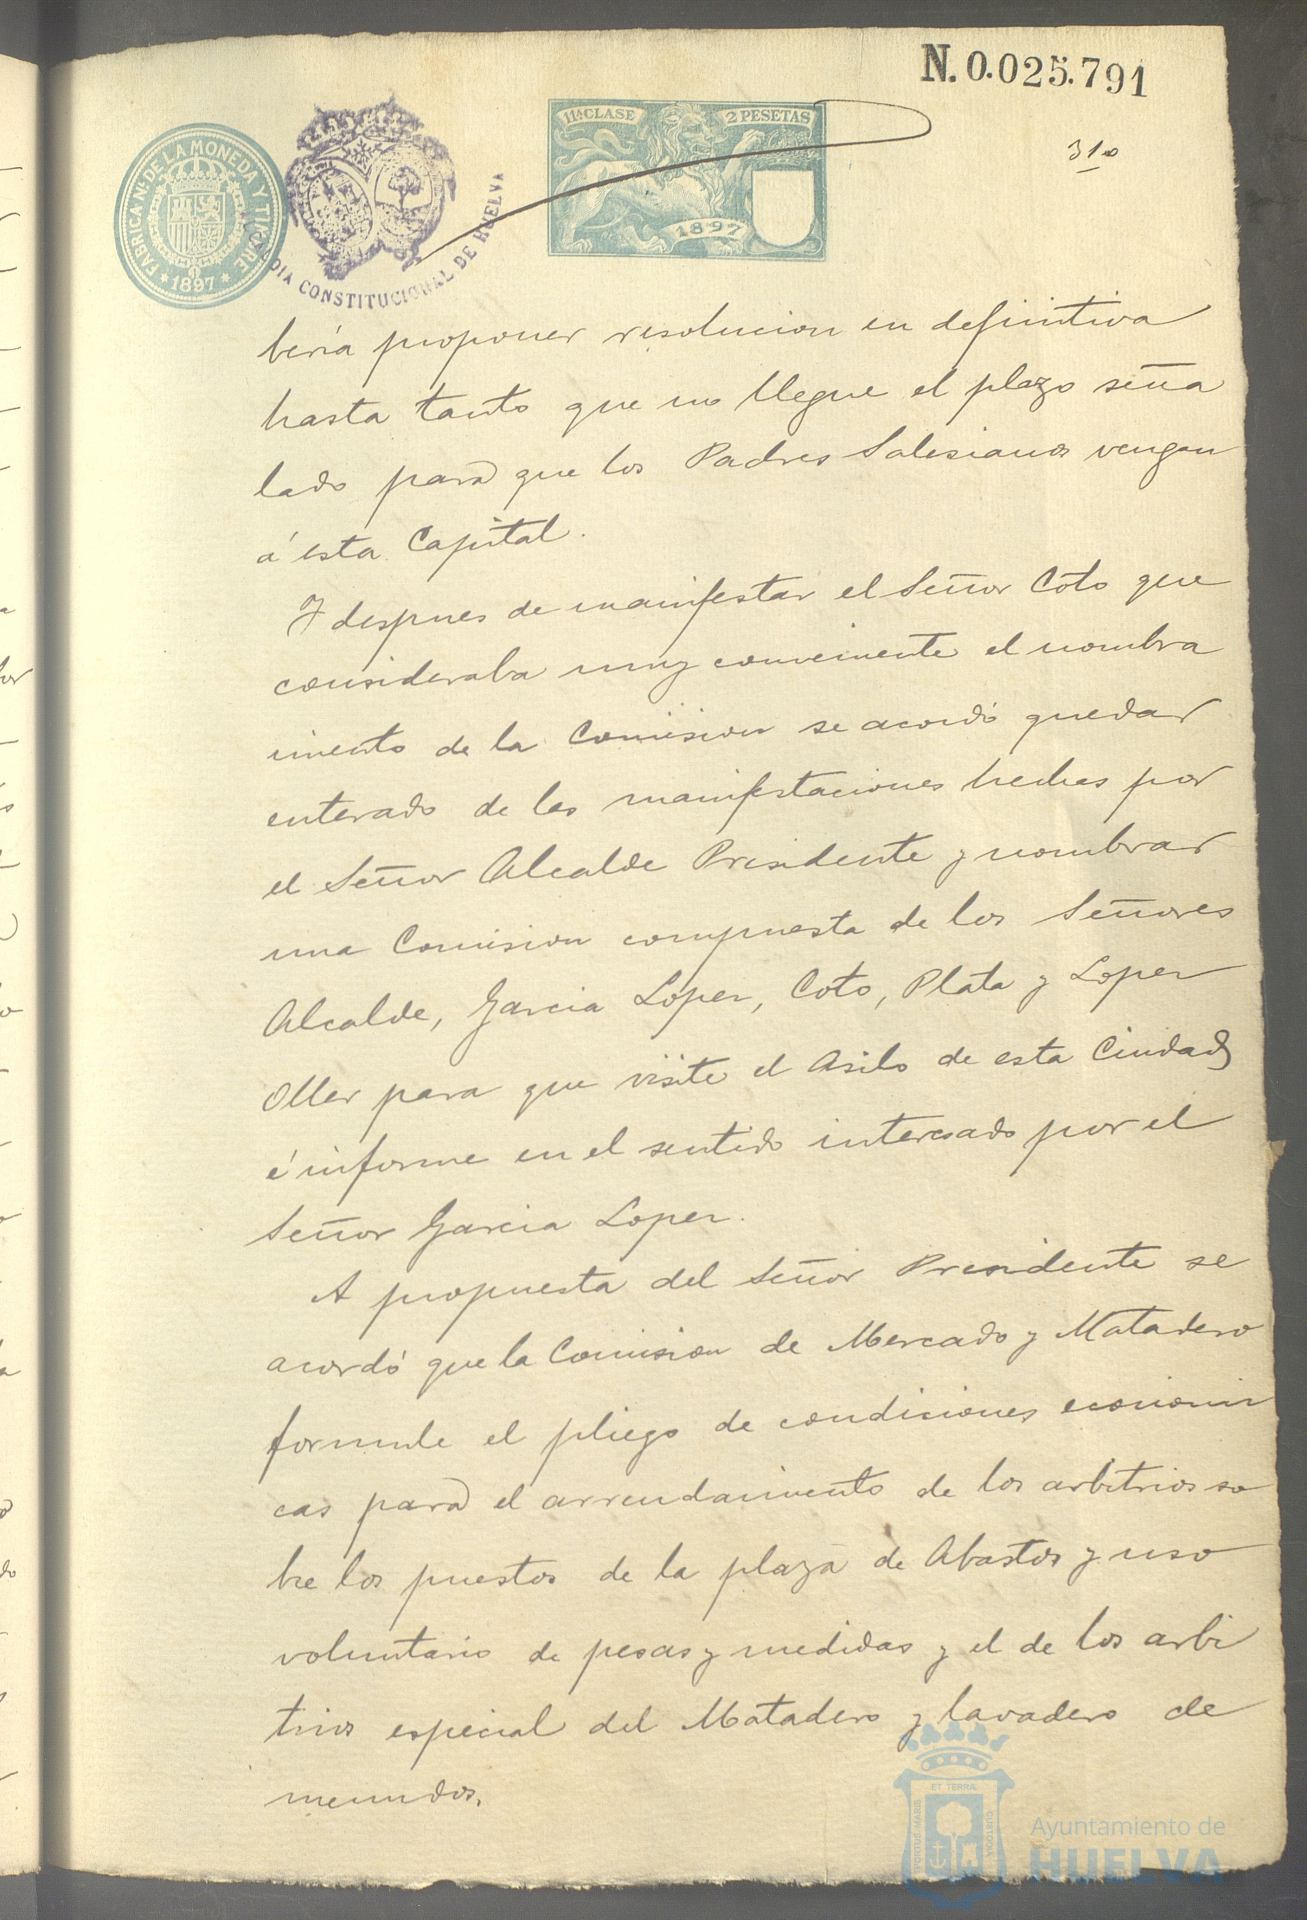 N. 0.025.791
11ª CLASE 2 PESETAS
1897
FABRICA Nl. DE LA MONEDA Y TIMBRE
* 1897 *
DIA CONSTITUCIONAL DE HUELVA
31
beria proponer resolucion en definitiva
hasta tanto que no llegue el plazo seña
lado para que los Padres Salesianos vengan
á esta Capital.
Y despues de manifestar el Señor Coto que
consideraba muy conveniente el nombra
miento de la Comision se acordó quedar
enterado de las manifestaciones hechas por
el Señor Alcalde Presidente y nombrar
una Comision compuesta de los Señores
Alcalde, Garcia Lopez, Coto, Plata y Lopez
Oller para que visite el Asilo de esta Ciudad
é informe en el sentido interesado por el
Señor Garcia Lopez.
A propuesta del Señor Presidente se
acordó que la Comision de Mercado y Matadero
formule el pliego de condiciones economi
cas para el arrendamiento de los arbitrios so
bre los puestos de la plaza de Abastos y uso
voluntario de pesas y medidas y el de los arbi
trios especial del Matadero y lavadero de
menudos.
ET TERRÆ
PORTUS MARIS
CUSTODIA
Ayuntamiento de
HUELVA